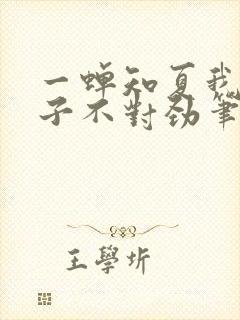 一蝉知夏我
子不對劲筆
王學圻